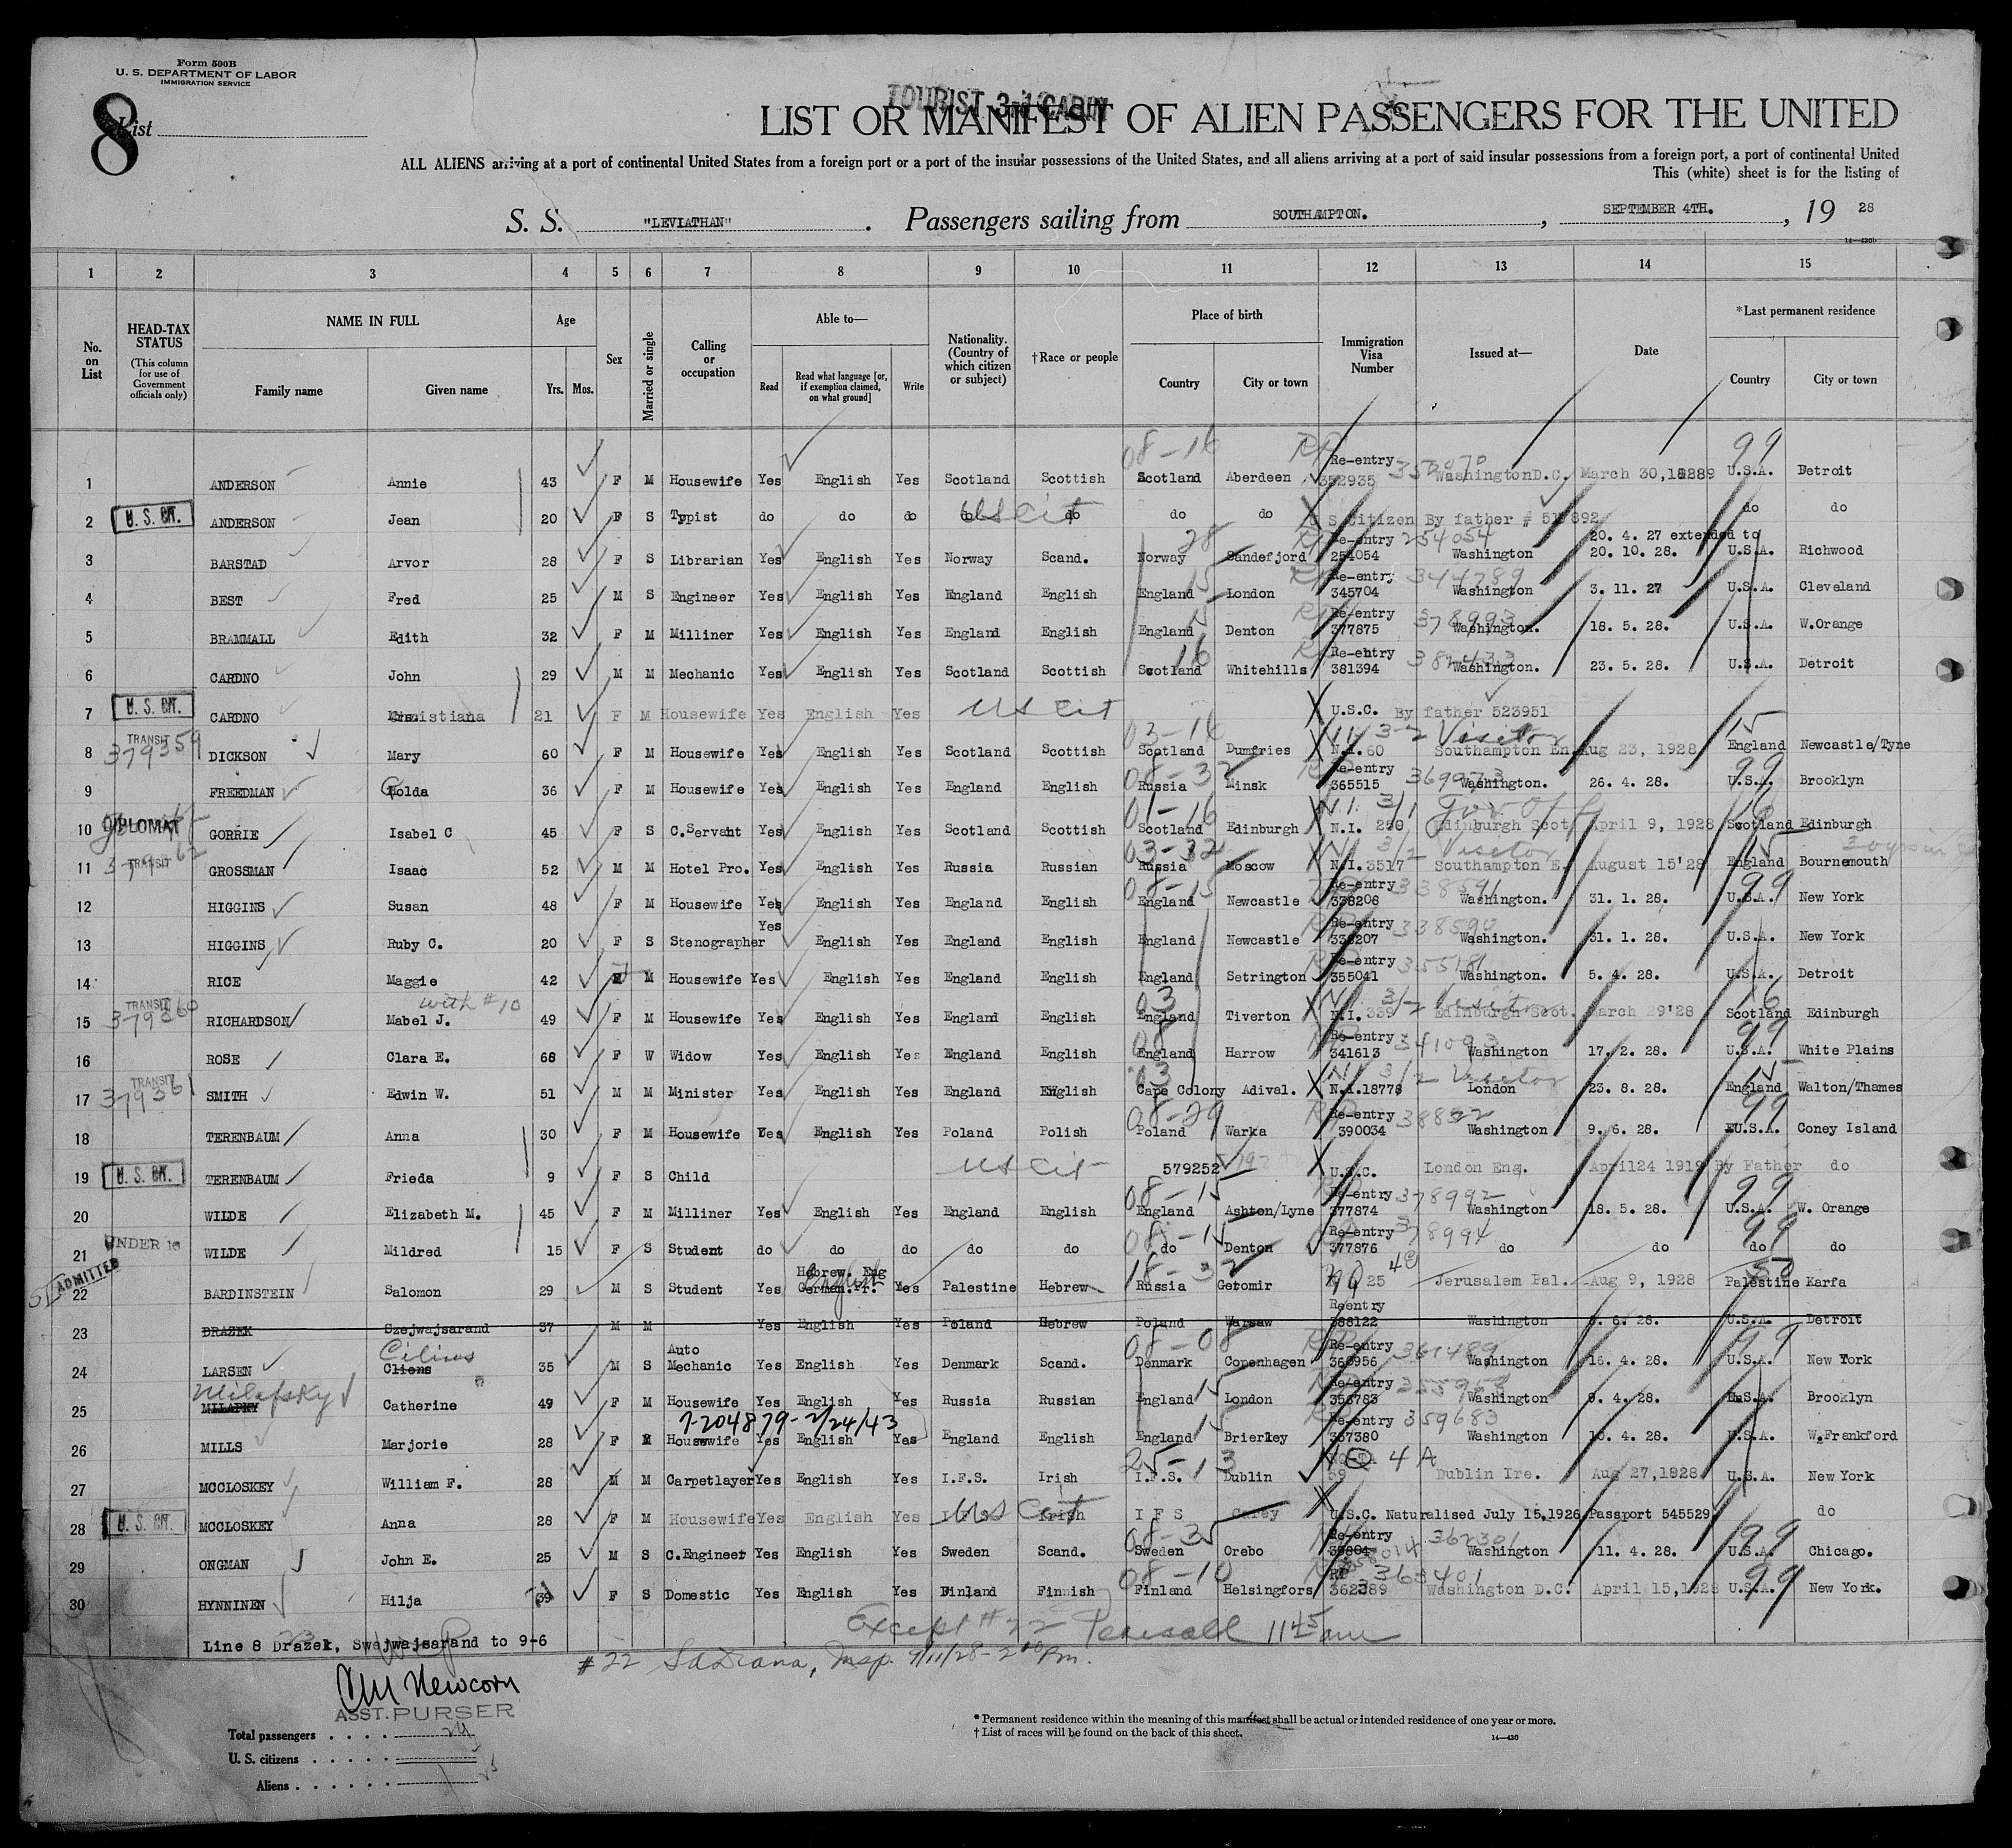 Form 500B
U. S. DEPARTMENT OF LABOR
IMMIGRATION SERVICE
8
List
TOURIST 3rd CABIN
LIST OR MANIFEST OF ALIEN PASSENGERS FOR THE UNITED
ALL ALIENS arriving at a port of continental United States from a foreign port or a port of the insular possessions of the United States, and all aliens arriving at a port of said insular possessions from a foreign port, a port of continental United
This (white) sheet is for the listing of
S. S. "LEVIATHAN" . Passengers sailing from SOUTHAMPTON. , SEPTEMBER 4TH. , 19 28
14—430b
1 2 3 4 5 6 7 8 9 10 11 12 13 14 15
No. on List
HEAD-TAX STATUS (This column for use of Government officials only)
NAME IN FULL
Family name Given name
Age
Yrs. Mos.
Sex
Married or single
Calling or occupation
Able to—
Read Read what language [or, if exemption claimed, on what ground] Write
Nationality. (Country of which citizen or subject)
†Race or people
Place of birth
Country City or town
Immigration Visa Number
Issued at—
Date
*Last permanent residence
Country City or town
1 ANDERSON Annie 43 F M Housewife Yes English Yes Scotland Scottish 08-16 Scotland Aberdeen Re-entry 352935 Washington D.C. March 30, 99 U.S.A. Detroit
2 U. S. CIT. ANDERSON Jean 20 F S Typist do do do US Cit do do do U S Citizen By father # 517892 do do
3 BARSTAD Arvor 28 F S Librarian Yes English Yes Norway Scand. Norway 28 Sandefjord Re-entry 254054 254054 Washington 20. 4. 27 extended to 20. 10. 28. U.S.A. Richwood
4 BEST Fred 25 M S Engineer Yes English Yes England English England 15 London Re-entry 345704 344789 Washington 3. 11. 27 U.S.A. Cleveland
5 BRAMMALL Edith 32 F M Milliner Yes English Yes England English England Denton Re-entry 377875 378993 Washington. 18. 5. 28. U.S.A. W.Orange
6 CARDNO John 29 M M Mechanic Yes English Yes Scotland Scottish Scotland 16 Whitehills Re-entry 381394 Washington. 23. 5. 28. U.S.A. Detroit
7 U. S. CIT. CARDNO 21 F M Housewife Yes English Yes US Cit U.S.C. By father 523951
8 TRANSIT 379359 DICKSON Mary 60 F M Housewife Yes English Yes Scotland Scottish 03-16 Scotland Dumfries N.I. 60 3-2 Visitor Southampton En. Aug 23, 1928 15 England Newcastle/Tyne
9 FREEDMAN Golda 36 F M Housewife Yes English Yes England English 08-32 Russia Minsk Re-entry 365515 369973 Washington. 26. 4. 28. 99 U.S.A. Brooklyn
10 DIPLOMAT GORRIE Isabel C 45 F S C.Servant Yes English Yes Scotland Scottish 01-16 Scotland Edinburgh N.I. 3/1 N.I. 290 Edinburgh Scot. April 9, 1928 16 Scotland Edinburgh
11 TRANSIT GROSSMAN Isaac 52 M M Hotel Pro. Yes English Yes Russia Russian 03-32 Russia Moscow N.I. 3517 3/2 Visitor Southampton E. August 15'28 15 England Bournemouth
12 HIGGINS Susan 48 F M Housewife Yes English Yes England English 08-15 England Newcastle Re-entry 338206 338591 Washington. 31. 1. 28. 99 U.S.A. New York
13 HIGGINS Ruby C. 20 F S Stenographer Yes English Yes England English England Newcastle Re-entry 338207 338590 Washington. 31. 1. 28. U.S.A. New York
14 RICE Maggie 42 M Housewife Yes English Yes England English England Setrington Re-entry 355041 355181 Washington. 5. 4. 28. U.S.A. Detroit
15 TRANSIT 379360 RICHARDSON with #10 Mabel J. 49 F M Housewife Yes English Yes England English 03 England Tiverton N.I. 339 3/2 Visitor Edinburgh Scot. March 29'28 16 Scotland Edinburgh
16 ROSE Clara E. 68 F W Widow Yes English Yes England English 08 England Harrow Re-entry 341613 341093 Washington 17. 2. 28. 99 U.S.A. White Plains
17 TRANSIT 379361 SMITH Edwin W. 51 M M Minister Yes English Yes England English 03 Cape Colony Adival. N.I.18778 3/2 Visitor London 23. 8. 28. 15 England Walton/Thames
18 TERENBAUM Anna 30 F M Housewife Yes English Yes Poland Polish 08-29 Poland Warka Re-entry 390034 Washington 9. 6. 28. 99 U.S.A. Coney Island
19 U. S. CIT. TERENBAUM Frieda 9 F S Child US Cit 579252 U.S.C. London Eng. April24 1919 By Father do
20 WILDE Elizabeth M. 45 F M Milliner Yes English Yes England English 08-15 England Ashton/Lyne Re-entry 377874 378992 Washington 18. 5. 28. 99 U.S.A. W. Orange
21 UNDER 16 WILDE Mildred 15 F S Student do do do do do 08-15 do Denton Re-entry 377876 378994 do do 99 do do
22 ADMITTED BARDINSTEIN Salomon 29 M S Student Yes Hebrew. Eng German.Fr. English Yes Palestine Hebrew 18-32 Russia Getomir NQ 25 4e Jerusalem Pal. Aug 9, 1928 50 Palestine Karfa
23 DRAZEK Szejwajsarand 37 M M Yes English Yes Poland Hebrew Poland Warsaw Reentry 388122 Washington U.S.A. Detroit
24 LARSEN Cilius Cliens 35 M S Auto Mechanic Yes English Yes Denmark Scand. 08-08 Denmark Copenhagen Re-entry 360956 361489 Washington 16. 4. 28. 99 U.S.A. New York
25 Milafsky MILAPKY Catherine 49 F M Housewife Yes English Yes Russia Russian England 15 London Re-entry Washington 9. 4. 28. U.S.A. Brooklyn
7-204879-2/24/43
26 MILLS Marjorie 28 F M Housewife Yes English Yes England English England 15 Brierley Re-entry 357380 359683 Washington 10. 4. 28. U.S.A. W.Frankford
27 MCCLOSKEY William F. 28 M M Carpetlayer Yes English Yes I.F.S. Irish 25-13 I.F.S. Dublin 4 A Dublin Ire. Aug 27,1928 U.S.A. New York
28 U. S. CIT. MCCLOSKEY Anna 28 F M Housewife Yes English Yes US Cit Irish I F S Carey U.S.C. Naturalised July 15,1926 Passport 545529 do
29 ONGMAN John E. 25 M S C.Engineer Yes English Yes Sweden Scand. 08-35 Sweden Orebo Re-entry 358014 362301 Washington 11. 4. 28. 99 U.S.A. Chicago.
30 HYNNINEN Hilja 39 F S Domestic Yes English Yes Finland Finnish 08-10 Finland Helsingfors RP 362389 363401 Washington D.C. April 15,1928 99 U.S.A. New York.
Except #22 Pensall 1145am
Line 8 Drazek, Swejwajsarand to 9-6
#22 LaDiana, Insp. 9/11/28-210 Pm.
CM Newcorn
ASST. PURSER
Total passengers
U. S. citizens
Aliens
* Permanent residence within the meaning of this manifest shall be actual or intended residence of one year or more.
† List of races will be found on the back of this sheet.
14—430